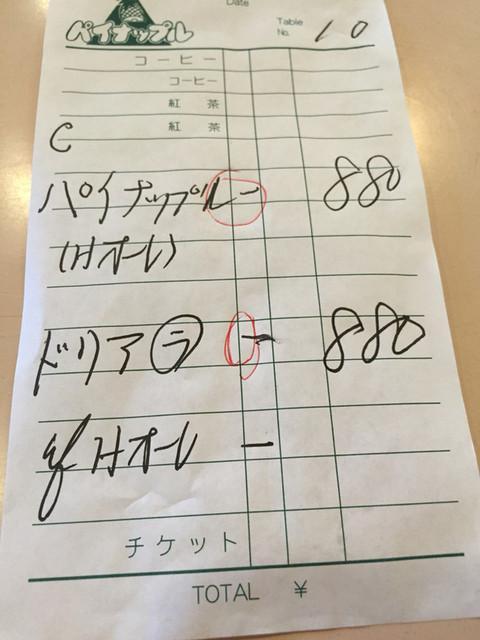 Date
パイナップル
Table No. 10
コーヒー
コーヒー
紅 茶
紅 茶
C
パイナップル 一 880
(Hオーレ)
ドリア ㋶ 一 880
Hオーレ 一
チケット
TOTAL ¥